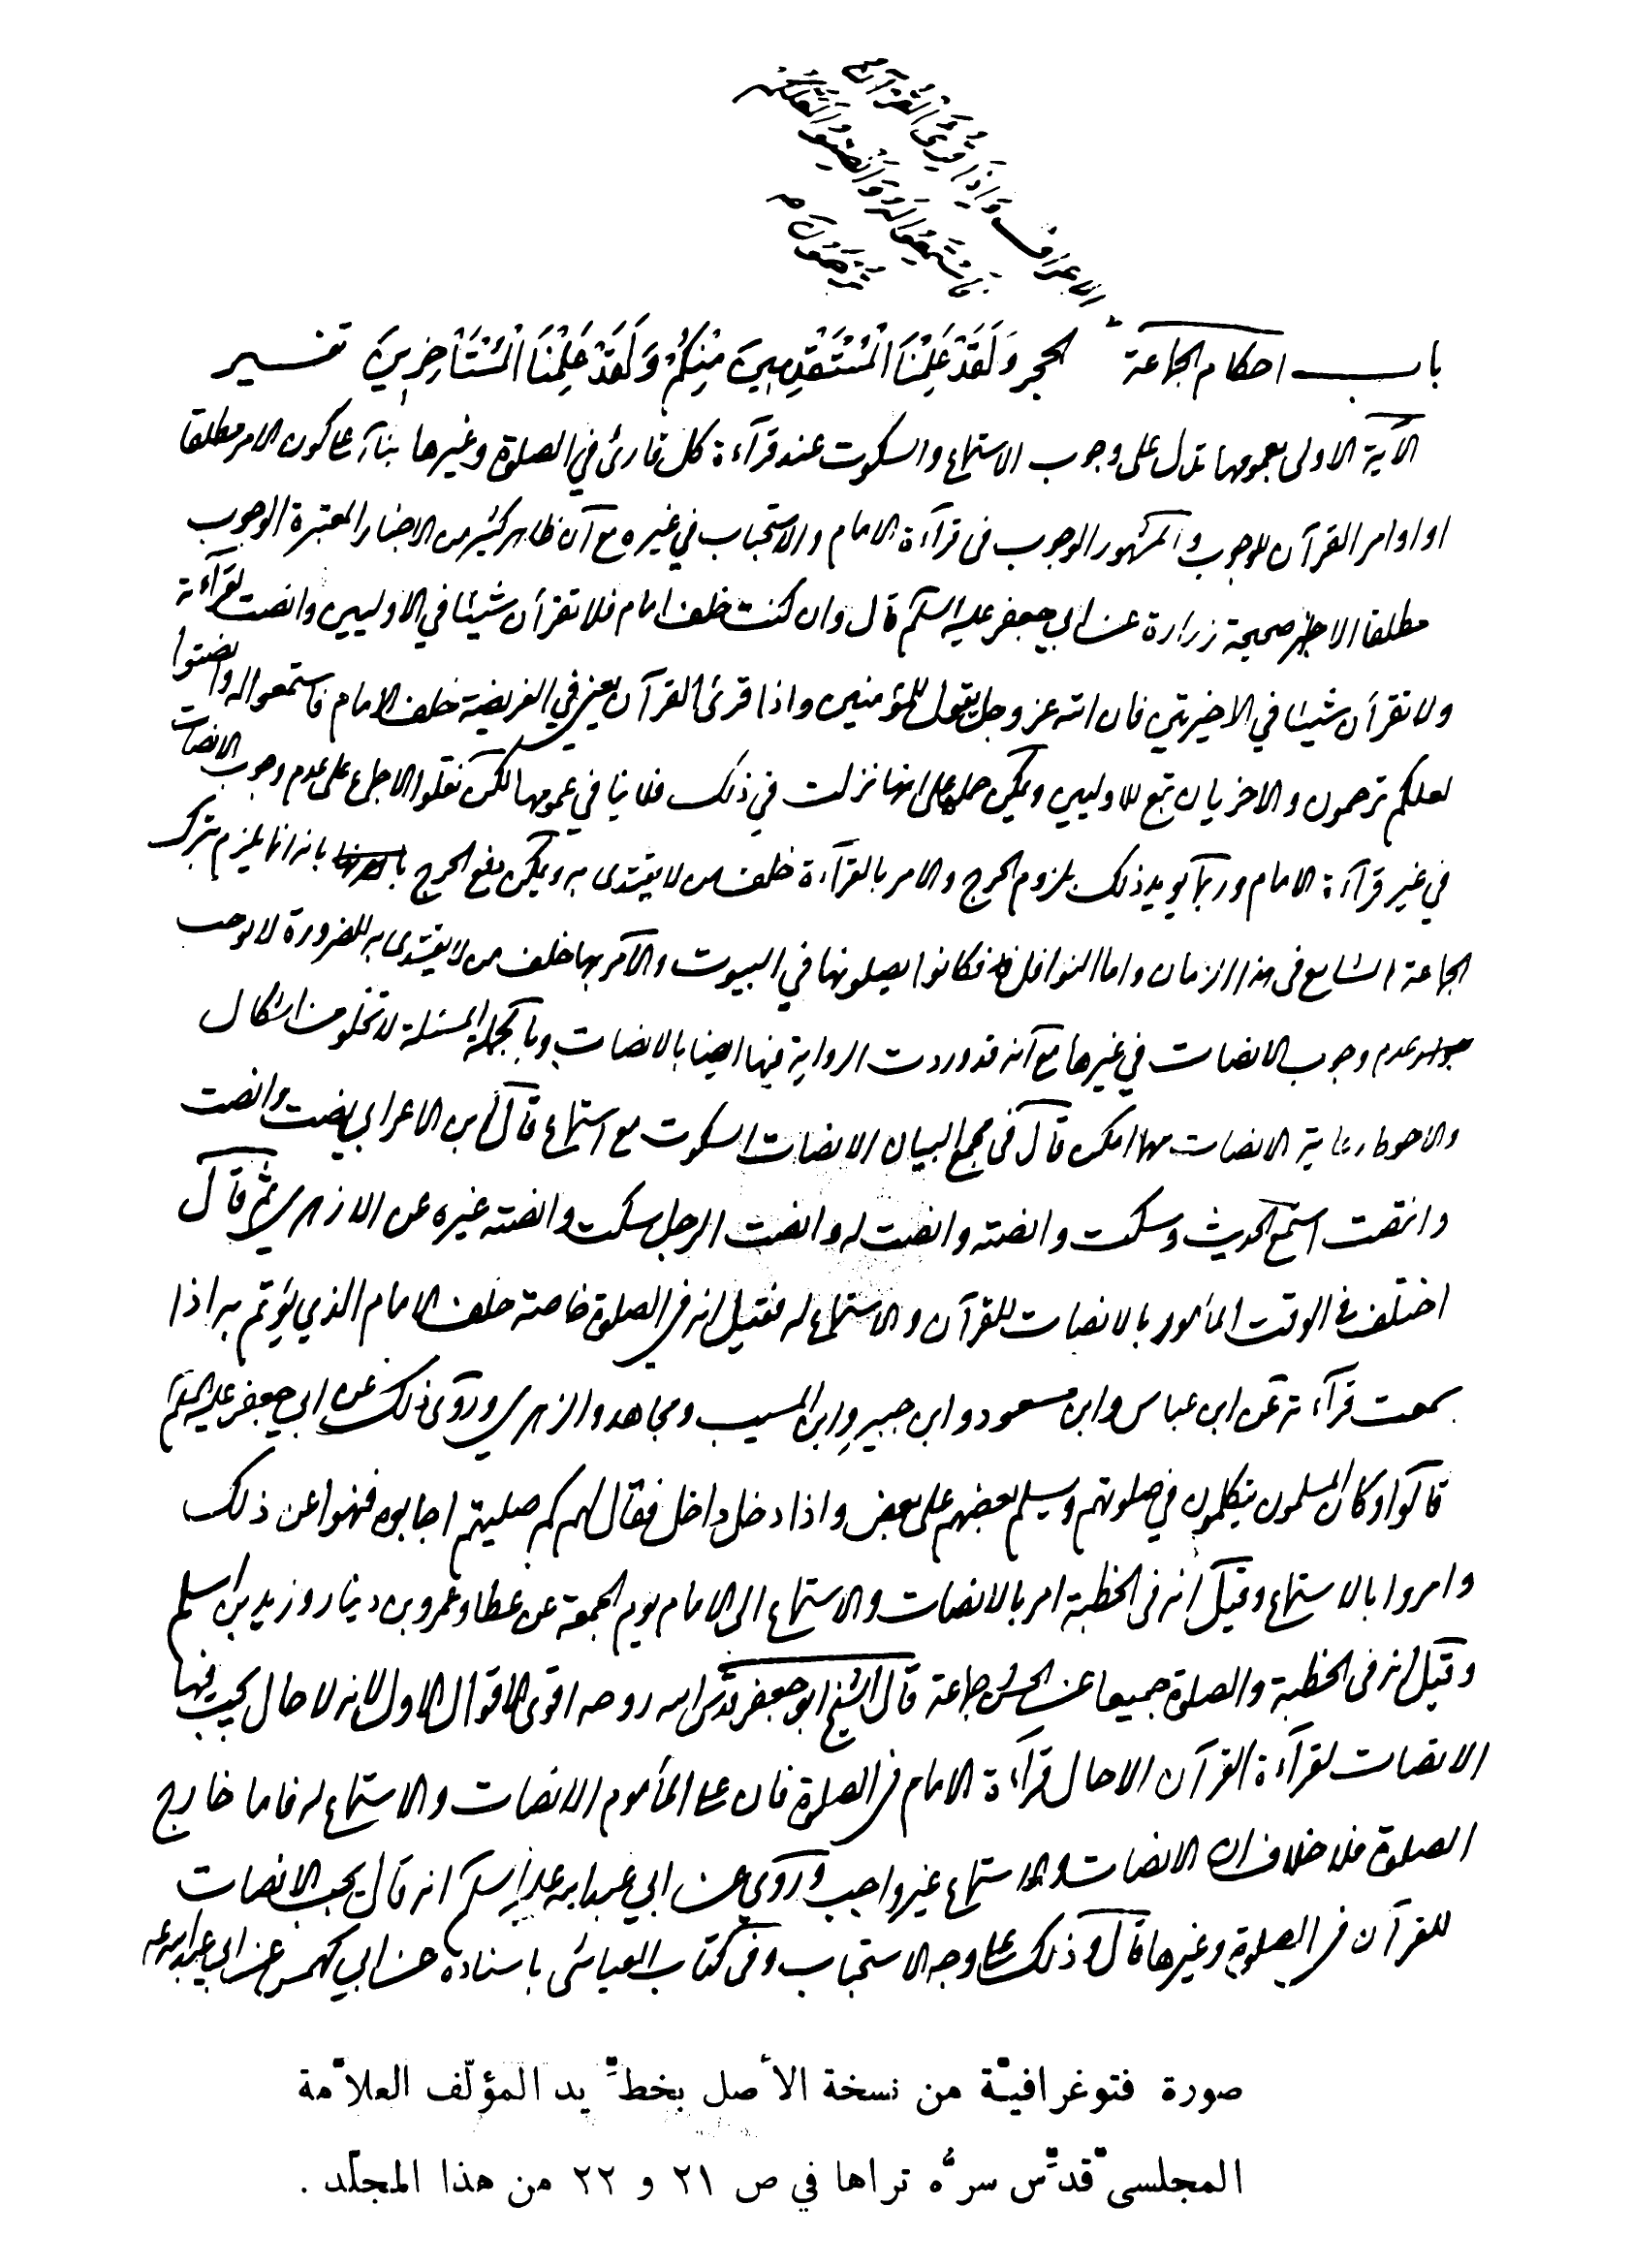 الاعراف وَاِذَا قُرِئَ الْقُرْآنُ
فَاسْتَمِعُوا لَهُ وَاَنْصِتُوا لَعَلَّكُمْ
تُرْحَمُونَ
باب احكام الجماعة الحجر وَلَقَدْ عَلِمْنَا الْمُسْتَقْدِمِينَ مِنْكُمْ وَلَقَدْ عَلِمْنَا الْمُسْتَأْخِرِينَ تفسير
الآية الاولى بعمومها تدل على وجوب الاستماع والسكوت عند قرآءة كل قارئ في الصلوة وغيرها بنآء على كون الامر مطلقا
او اوامر القرآن للوجوب والمشهور الوجوب فى قرآءة الامام والاستحباب في غيره مع آن ظاهر كثير من الاخبار المعتبرة الوجوب
مطلقا الا صحيحة زرارة عن ابي جعفر عليه السلام قال وان كنت خلف امام فلا تقرأن شيئا في الاوليين وانصت لقرآءته
ولا تقرأن شيئا في الاخيرتين فان الله عز وجل يقول للمؤمنين واذا قرئ القرآن يعني في الفريضة خلف الامام فاستمعوا له وانصتوا
لعلكم ترحمون والاخريان تبع للاوليين ويمكن حملها على انها نزلت في ذلك فلا ينافي عمومها لكن نقلوا الاجماع على عدم وجوب الانصات
في غير قرآءة الامام وربمآ يويد ذلك بلزوم الحرج والامر بالقرآءة خلف من لا يقتدى به ويمكن دفع الحرج بانه انما يلزم بترك
الجماعة الشايع فى هذا الزمان واما النوافل فكانوا يصلونها في البيوت والآمر بها خلف من لا يقتدى به للضرورة لا يوجب
عدم وجوب الانصات في غيرها مع آنه قد وردت الرواية فيها ايضا بالانصات وبآلجملة المسئلة لا تخلو من اشكال
والاحوط رعاية الانصات مهما امكن قآل فى مجمع البيان الانصات السكوت مع استماع قآل ابن الاعرابي نصت وانصت
وانتصت استمع الحديث وسكت وانصته وانصت له وانصت الرجل سكت وانصته غيره عن الازهري ثم قآل
اختلف في الوقت المأمور بالانصات للقرآن والاستماع له فقيل انه في الصلوة خاصة خلف الامام الذي يؤتم به اذا
سمعت قرآءته عن ابن عباس وابن مسعود وابن جبير وابن المسيب ومجاهد والزهري وروى ذلك عن ابي جعفر عليه السلام
قآلوا وكان المسلمون يتكلمون في صلوتهم ويسلم بعضهم على بعض واذا دخل داخل فقال لهم كم صليتم اجابوه فنهوا عن ذلك
وامروا بالاستماع وقيل انه فى الخطبة امر بالانصات والاستماع الى الامام يوم الجمعة عن عطا وعمرو بن دينار وزيد بن اسلم
وقيل انه فى الخطبة والصلوة جميعا عن الحسن وجماعة قآل الشيخ ابو جعفر قدس الله روحه اقوى الاقوال الاول لانه لا حال يجب فيها
الانصات لقرآءة القرآن الا حال قرآءة الامام في الصلوة فان على المأموم الانصات والاستماع له فاما خارج
الصلوة فلا خلاف ان الانصات والاستماع غير واجب وروي عن ابي عبد الله عليه السلام انه قال يجب الانصات
للقرآن في الصلوة وغيرها قآل وذلك على وجه الاستحباب وفى كتاب العياشى باسناده عن ابي كهمس عن ابي عبد الله ع
صورة فتوغرافيّة من نسخة الأصل بخطّ يد المؤلّف العلاّمة
المجلسيّ قدّس سرّه تراها في ص ٢١ و ٢٢ من هذا المجلّد .